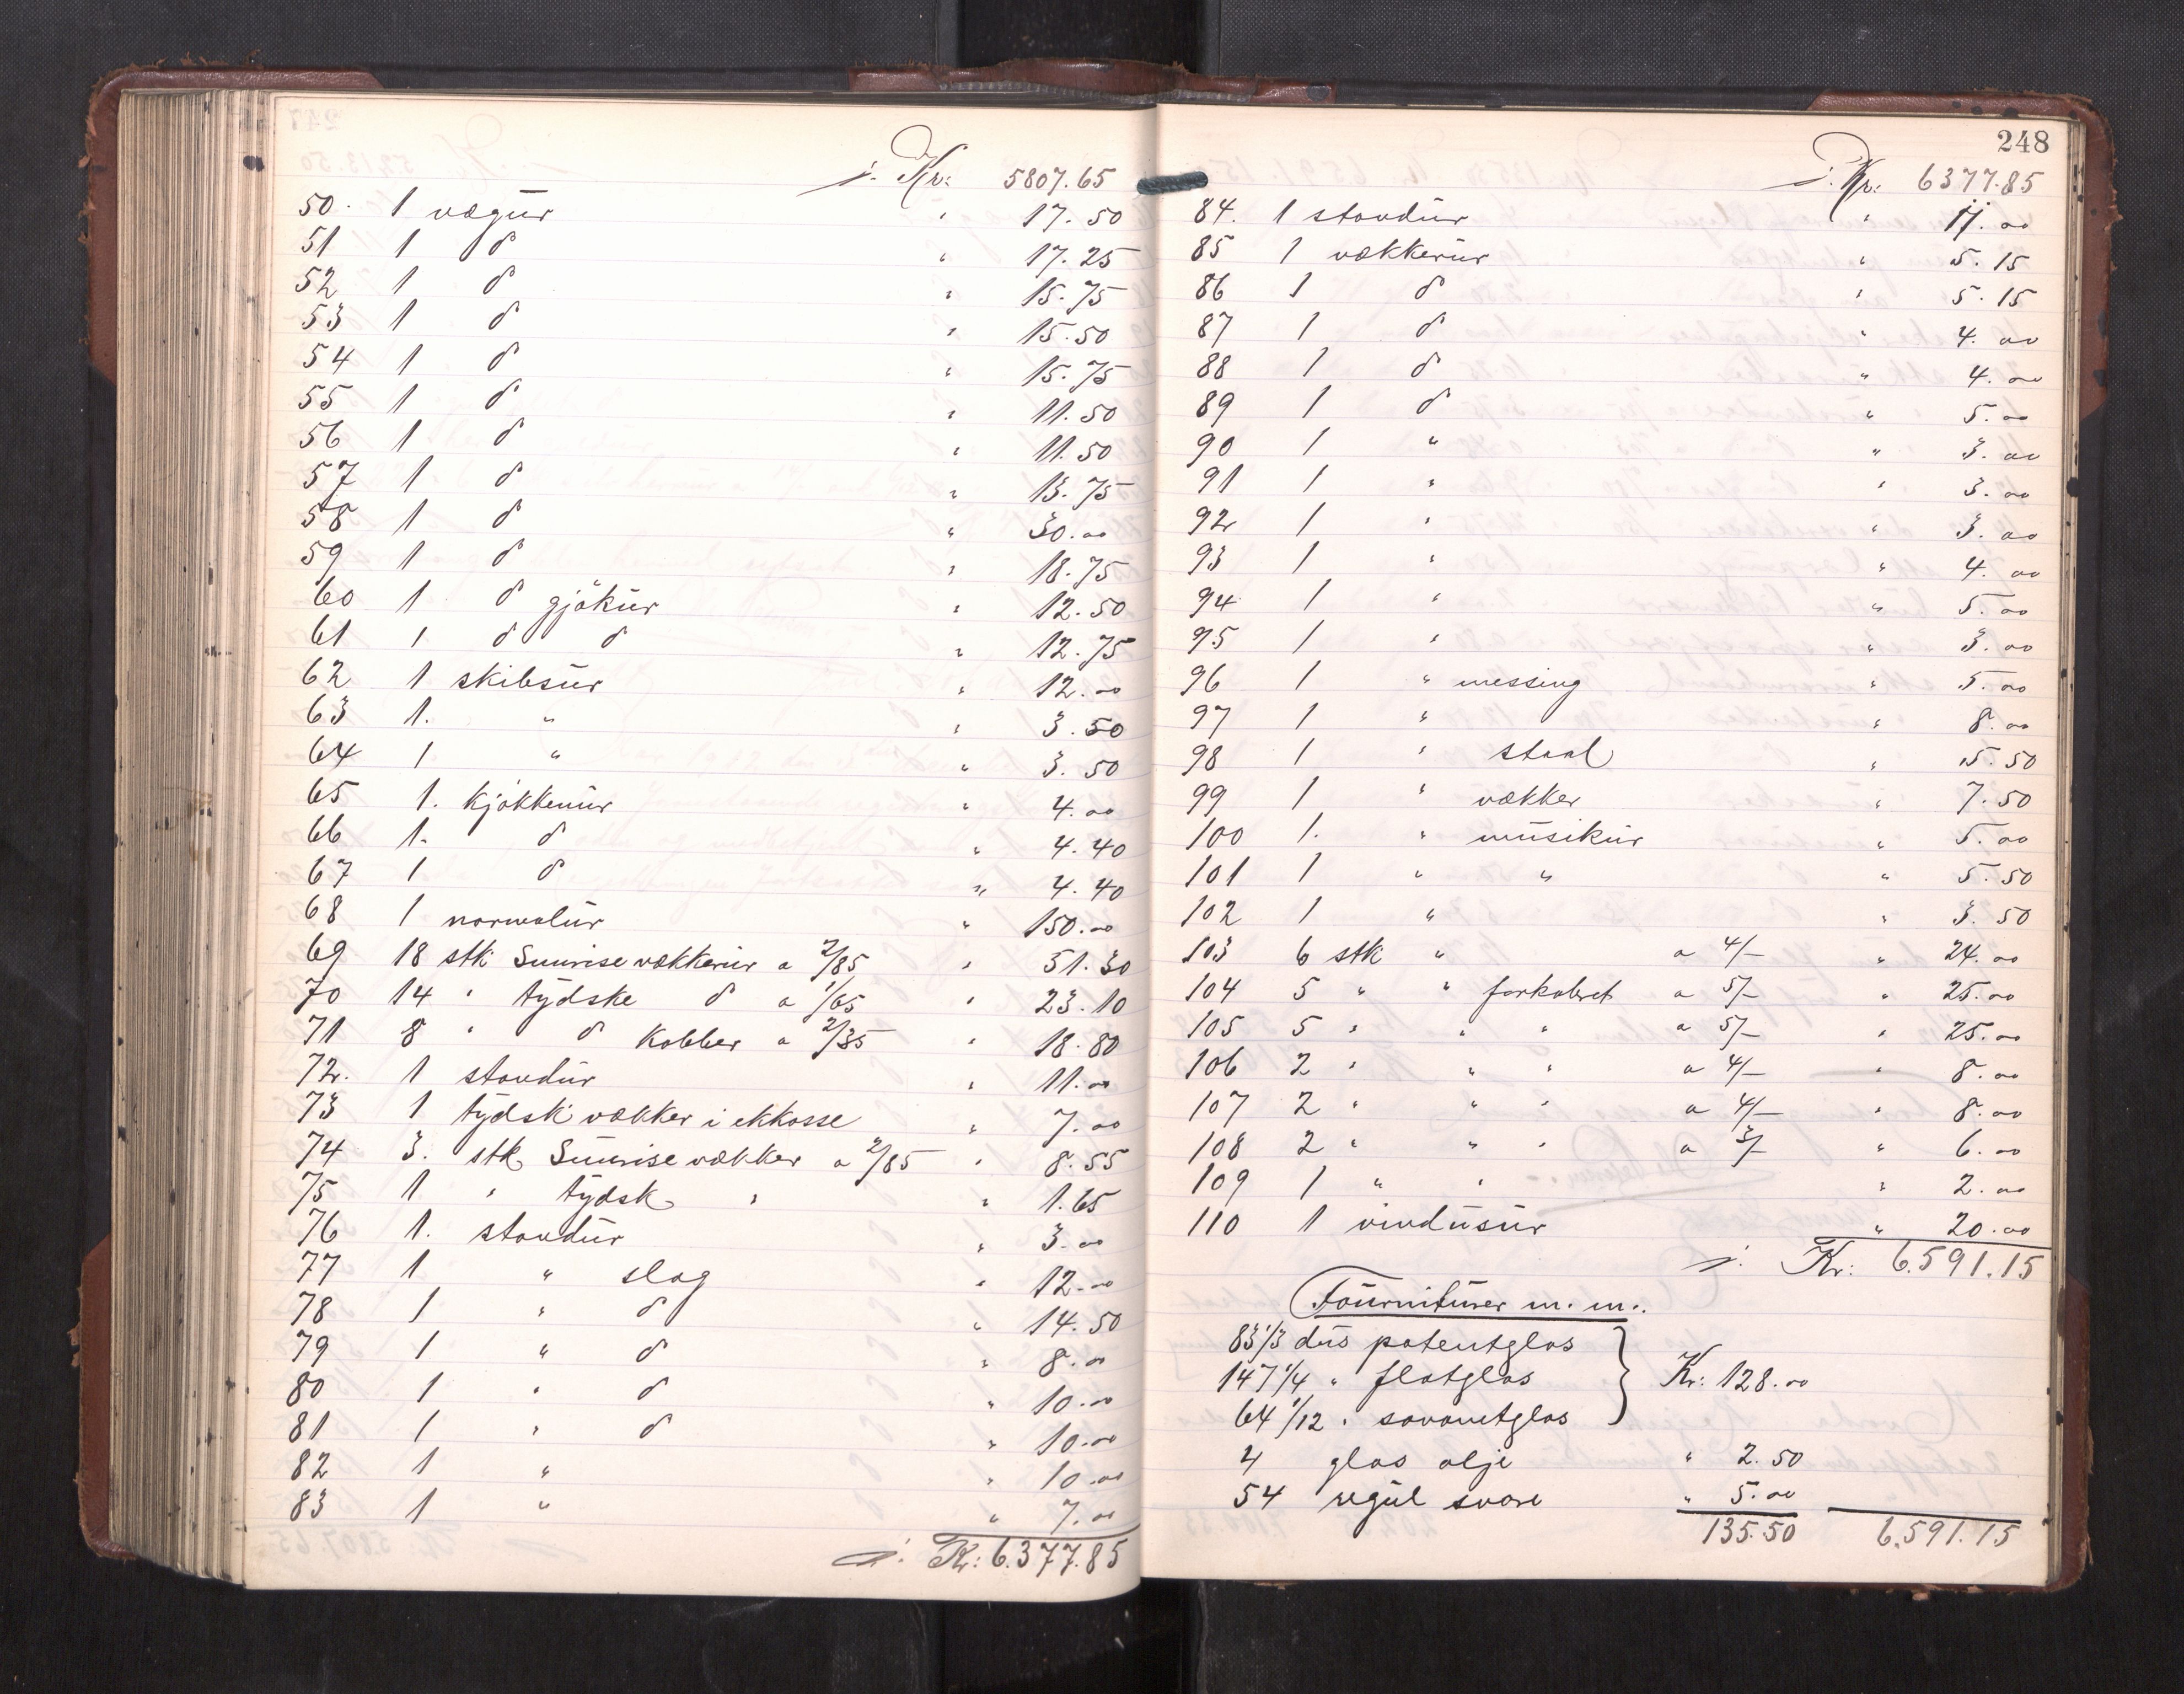 j. Kr: 5807.65
50. 1 vægür " 17.50
51 1 d " 17.25
52 1 d " 15.75
53 1 d " 15.50
54 1 d " 15.75
55 1 d " 11.50
56 1 d " 11.50
57 1 d " 13.75
58 1 d " 30.00
59 1 d " 18.75
60 1 d gjökür " 12.50
61 1 d d " 12.75
62 1 skibsür " 12.00
63 1. " " 3.50
64 1 " " 3.50
65 1. kjökkenür " 4.00
66 1. d " 4.40
67 1 d " 4.40
68 1 normalür " 150.00
69 18 stk Sunrise vækkerür a 2/85 " 51.30
70 14 " tydske d a 1/65 " 23.10
71 8 " d kobber a 2/35 " 18.80
72. 1 standür " 11.00
73 1 tydsk vækker i ekkasse " 7.00
74 3. stk Sünrise vækker a 2/85 " 8.55
75 1 " tydsk " " 1.65
76 1. standür " 3.00
77 1 " slag " 12.00
78 1 " d " 14.50
79 1 " d " 8.00
80 1 " d " 10.00
81 1 " d " 10.00
82 1 " " 10.00
83 1 " " 7.00
j. Kr: 6.377.85
248
j. Kr: 6377.85
84. 1 standür " 11.00
85 1 vækkerür " 5.15
86 1 d " 5.15
87 1 d " 4.00
88 1 d " 4.00
89 1 d " 5.00
90 1 " " 3.00
91 1 " " 3.00
92 1 " " 3.00
93 1 " " 4.00
94 1 " " 5.00
95 1 " " 3.00
96 1 " messing " 5.00
97 1 " " 8.00
98 1 " staal " 5.50
99 1 " vækker " 7.50
100 1. " müsikür " 5.00
101 1 " " " 5.50
102 1 " " 3.50
103 6 stk " a 4/- " 24.00
104 5 " " forkobret a 5/- " 25.00
105 5 " " " a 5/- " 25.00
106 2 " " " a 4/- " 8.00
107 2 " " " a 4/- " 8.00
108 2 " " " a 3/- " 6.00
109 1 " " " 2.00
110 1 vindüsür " 20.00
j. Kr: 6.591.15
Foürnitürer m. m.
83 1/3 düs patentglas
147 1/4 " flatglas Kr: 128.00
64 1/12 " savonetglas
4 glas olje " 2.50
54 regül svare " 5.00
135.50 6.591.15